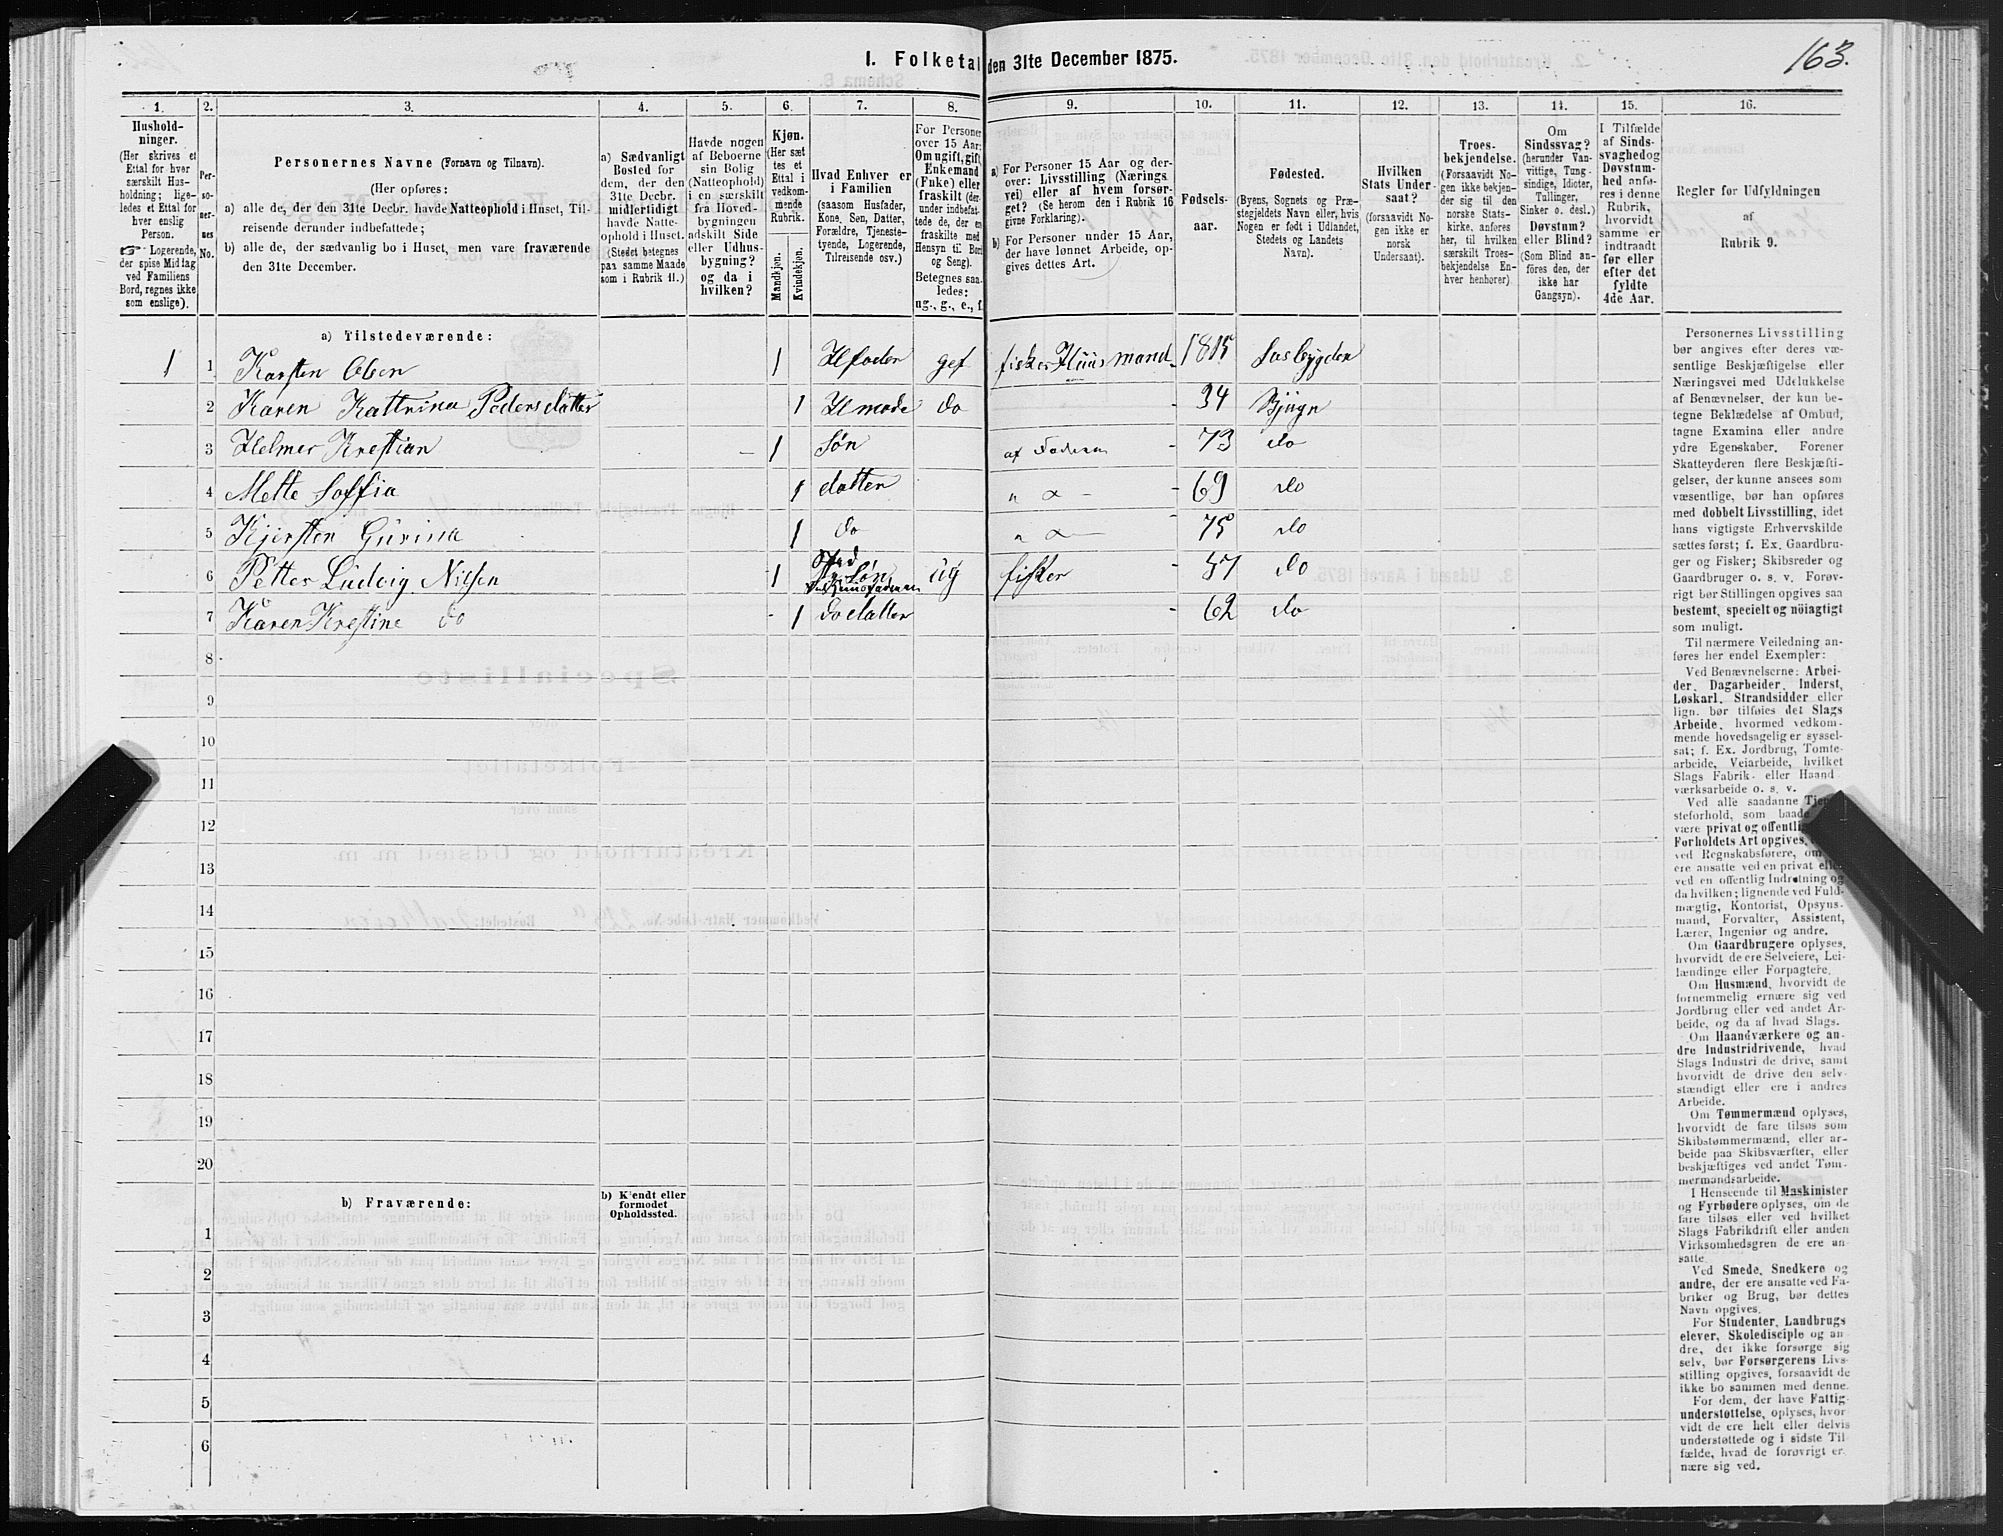 163.
I. Folketal den 31te December 1875.
1. 2. 3. 4. 5. 6. 7. 8. 9. 10. 11. 12. 13. 14. 15. 16.
Hushold-
ninger.
(Her skrives et
Ettal for hver
særskilt Hus-
holdning; lige-
ledes et Ettal for
hver enslig
Person.
☞ Logerende,
der spise Middag
ved Familiens
Bord, regnes ikke
som enslige).
Per-
so-
ner-
nes
No.
Personernes Navne (Fornavn og Tilnavn).
(Her opføres:
a) alle de, der den 31te Decbr. havde Natteophold i Huset, Til-
reisende derunder indbefattede;
b) alle de, der sædvanlig bo i Huset, men vare fraværende
den 31te December.
a) Sædvanligt
Bosted for
dem, der den
31te Decbr.
midlertidigt
havde Natte-
ophold i Huset.
(Stedet betegnes
paa samme Maade
som i Rubrik 11.)
Havde nogen
af Beboerne
sin Bolig
(Natteophold)
i en særskilt
fra Hoved-
bygningen
adskilt Side
eller Udhus-
bygning?
og da i
hvilken?
Kjøn.
(Her sæt
tes et
Ettal i
vedkom-
mende
Rubrik.
Mandkjøn.
Kvindekjøn.
Hvad Enhver er
i Familien
(saasom Husfader,
Kone, Søn, Datter,
Forældre, Tjeneste-
tyende, Logerende,
Tilreisende osv.)
For Personer
over 15 Aar:
Om ugift, gift,
Enkemand
(Enke) eller
fraskilt (der-
under indbefat-
tede de, der ere
fraskilte med
Hensyn til Bord
og Seng).
Betegnes saa-
ledes:
ug., g., e., f.
a) For Personer 15 Aar og der-
over: Livsstilling (Nærings
vei) eller af hvem forsør-
get? (Se herom den i Rubrik 16
givne Forklaring).
b) For Personer under 15 Aar,
der have lønnet Arbeide, op-
gives dettes Art.
Fødsels-
aar.
Fødested.
(Byens, Sognets og Præ-
stegjeldets Navn eller, hvis
Nogen er født i Udlandet,
Stedets og Landets
Navn).
Hvilken
Stats Under-
saat?
(forsaavidt No-
gen ikke er
norsk
Undersaat).
Troes-
bekjendelse.
(Forsaavidt No-
gen ikke bekjen-
der sig til den
norske Stats-
kirke, anføres
her, til hvilken
særskilt Troes-
bekjendelse En-
hver henhører).
Om
Sindssvag?
(herunder Van-
vittige, Tung-
sindige, Idioter,
Tullinger,
Sinker o. desl.)
Døvstum?
eller Blind?
(Som Blind an-
føres den, der
ikke har
Gangsyn).
I Tilfælde
af Sinds-
svaghed og
Døvstum-
hed anfø-
res i denne
Rubrik,
hvorvidt
samme er
indtraadt
før eller
efter det
fyldte
4de Aar.
Regler for Udfyldningen
af
Rubrik 9.
a) Tilstedeværende:
1 1 Karsten Olsen 1 Hfader gef fisker Huusmand 1815
2 Karen Kattrina Pedersdatter 1 Hmode do - 34 Bjugn
3 Helmer Krestian - 1 Søn af Faderen - 73 do
4 Mette Soffia 1 datter - 69 do
5 Kjersten Gurina 1 do 75 do
6 Petter Ludvig Nilsen 1 Søn ug fisker - 57 do
7 Karen Krestine do - 1 do datter - 62 do
8
9
10
11
12
13
14
15
16
17
18
19
20
b) Fraværende:
b) Kjendt eller
formodet
Opholdssted.
1
2
3
4
5
6
Personernes Livsstilling
bør angives efter deres væ-
sentlige Beskjæftigelse eller
Næringsvei med Udelukkelse
af Benævnelser, der kun be-
tegne Beklædelse af Ombud,
tagne Examina eller andre
ydre Egenskaber. Forener
Skatteyderen flere Beskjæfti-
gelser, der kunne ansees som
væsentlige, bør han opføres
med dobbelt Livsstilling, idet
hans vigtigste Erhvervskilde
sættes først; f. Ex. Gaardbru-
ger og Fisker; Skibsreder og
Gaardbruger o. s. v. Forøv-
rigt bør Stillingen opgives saa
bestemt, specielt og nøiagtigt
som muligt.
Til nærmere Veiledning an-
føres her endel Exempler:
Ved Benævnelserne: Arbei-
der, Dagarbeider, Inderst,
Løskarl, Strandsidder eller
lign. bør tilføies det Slags
Arbeide, hvormed vedkom-
mende hovedsagelig er syssel-
sat; f. Ex. Jordbrug, Tomte-
arbeide, Veiarbeide, hvilket
Slags Fabrik- eller Haand
værksarbeide o. s. v.
Ved alle saadanne
steforhold, som baade
være privat og
Forholdets Art opgives,
ved Regnskabsførere, om
ere ansatte ved en privat
ved en offentlig Indretning og
da hvilken; lignende ved Fuld-
mægtig, Kontorist, Opsyns-
mand, Forvalter, Assistent,
Lærer, Ingeniør og andre.
Om Gaardbrugere oplyses,
hvorvidt de ere Selveiere, Lei-
lændinge eller Forpagtere.
Om Husmænd, hvorvidt de
fornemmelig ernære sig ved
Jordbrug eller ved andet Ar-
beide, og da af hvad Slags.
Om Haandværkere og an-
dre Industridrivende, hvad
Slags Industri de drive, samt
hvorvidt de drive den selv-
stændigt eller ere i andres
Arbeide.
Om Tømmermænd oplyses,
hvorvidt de fare tilsøs som
Skibstømmermænd, eller ar-
beide paa Skibsværfter, eller
beskjæftiges ved andet Tøm-
mermandsarbeide.
I Henseende til Maskinister
og Fyrbødere oplyses, om de
fare tilsøs eller ved hvilket
Slags Fabrikdrift eller anden
Virksomhedsgren de ere an-
satte.
Ved Smede, Snedkere og
andre, der ere ansatte ved Fa-
briker og Brug, bør dettes
Navn opgives.
For Studenter, Landbrugs
elever, Skoledisciple og an-
dre, der ikke forsørge sig
selv, bør Forsørgerens Livs-
stilling opgives, forsaavidt de
ikke bo sammen med denne.
For dem, der have Fattig
understøttelse, oplyses, hvor-
vidt de ere helt eller delvis
understøttede og i sidste Til-
fælde, hvad de forøvrigt er-
nære sig ved.